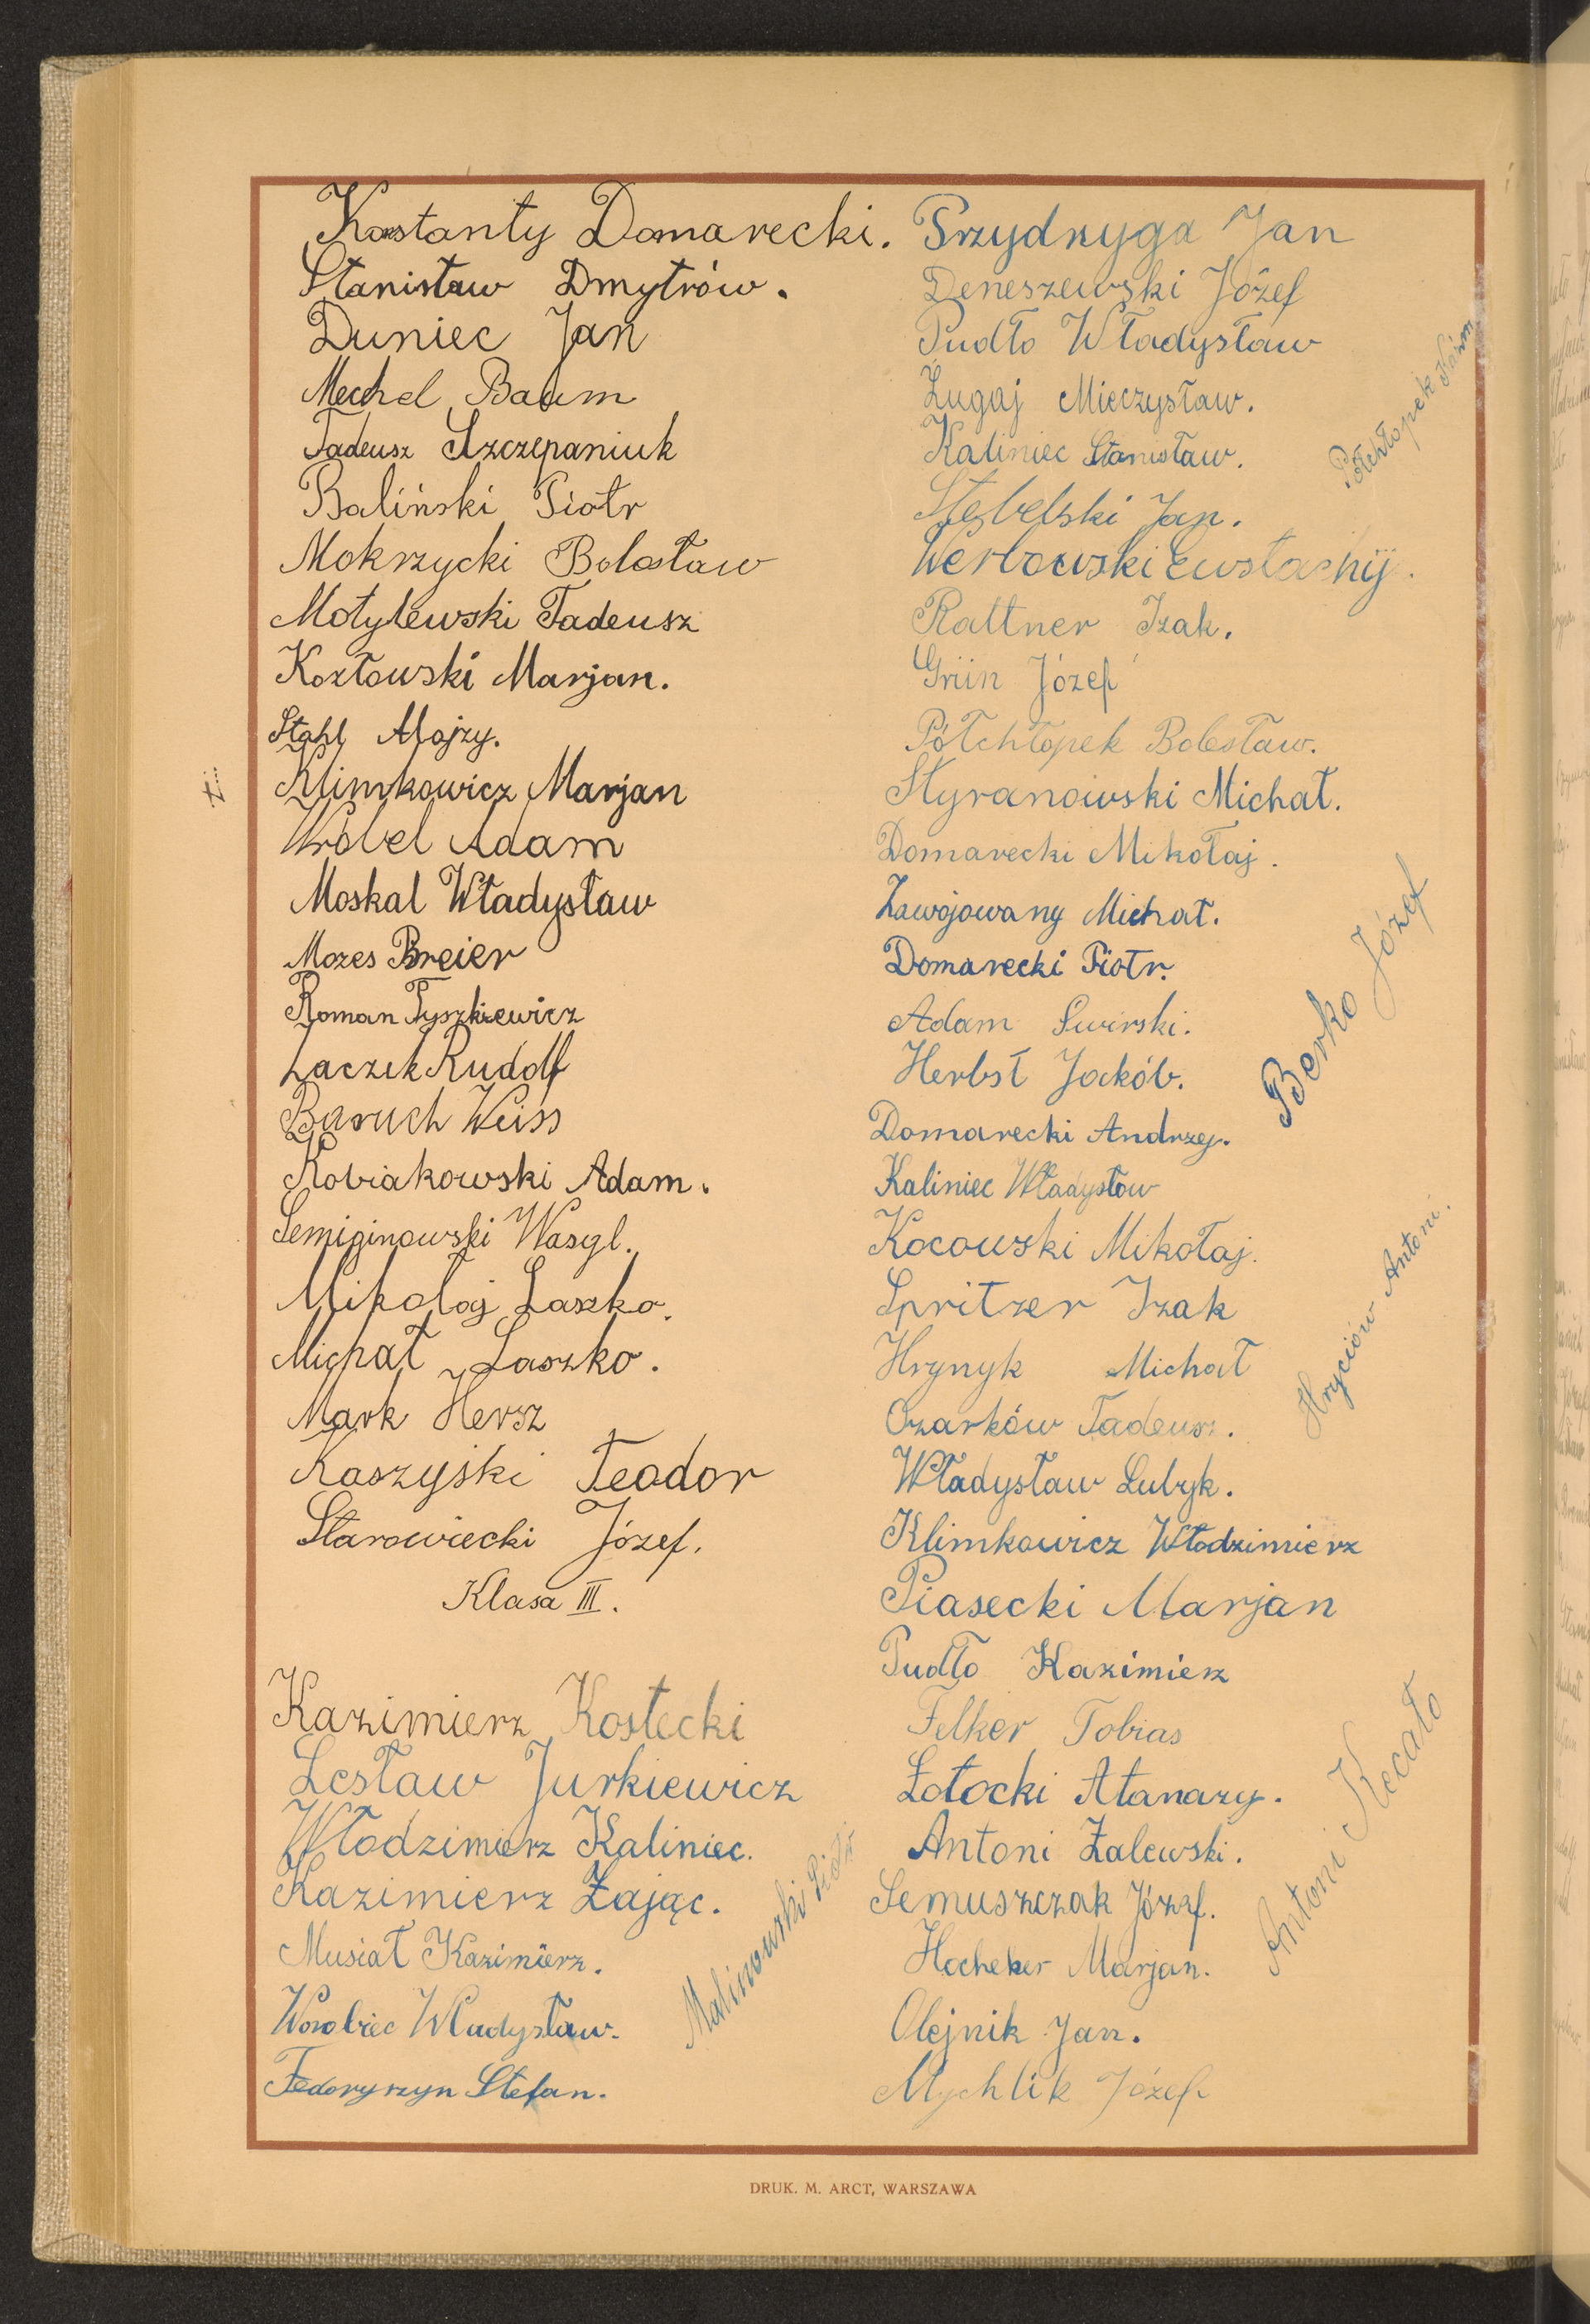 Konstanty Domarecki.
Stanisław Dmytrów.
Duniec Jan
Mechel Baum
Tadeusz Szczepaniuk
Baliński Piotr
Mokrzycki Bolesław
Motylewski Tadeusz
Kozłowski Marjan.
Stahl Mojzy.
Klimkowicz Marjan
Wróbel Adam
Moskal Władysław
Mozes Breier
Roman Tyszkiewicz
Laczek Rudolf
Baruch Weiss
Kobiakowski Adam.
Semiginowski Wasyl.
Mikołaj Laszko.
Michał Laszko.
Mark Hersz
Kaszyjski Teodor
Starowiecki Józef.
Klasa III.
Kazimierz Kostecki
Lesław Jurkiewicz
Włodzimierz Kaliniec.
Kazimierz Zając.
Musiał Kazimierz.
Worobiec Władysław.
Fedoryszyn Stefan.
Malinowski Piotr
Przydryga Jan
Deneszewski Józef
Pudło Władysław
Zugaj Mieczysław.
Kaliniec Stanisław.
Stebelski Jan.
Werbowski Eustachij.
Rattner Izak.
Grün Józef
Półchłopek Bolesław.
Styranowski Michał.
Domarecki Mikołaj.
Zawojowany Michał.
Domarecki Piotr.
Adam Swirski.
Herbst Jakób.
Domarecki Andrzej.
Kaliniec Władysław
Kocowski Mikołaj.
Spritzer Izak
Hrynyk Michał
Ozarków Tadeusz.
Władysław Lubyk.
Klimkowicz Włodzimierz
Piasecki Marjan
Pudło Kazimierz
Felker Tobias
Łotocki Atanazy.
Antoni Zalewski.
Semuszczak Józef.
Hocheker Marjan.
Olejnik Jan.
Mychlik Józef
Półchłopek
Berko Józef
Hryciów Antoni.
Antoni Kecało
DRUK. M. ARCT, WARSZAWA